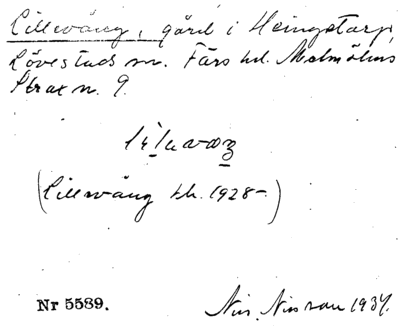 Lillevång, gård i Heingetarp,
Lövestads sn. Färs hd. Malmöhus
Skrax n. 9.
(Lillevång kh. 1928-)
Nr 5589.
Nils Nilsson 1937.